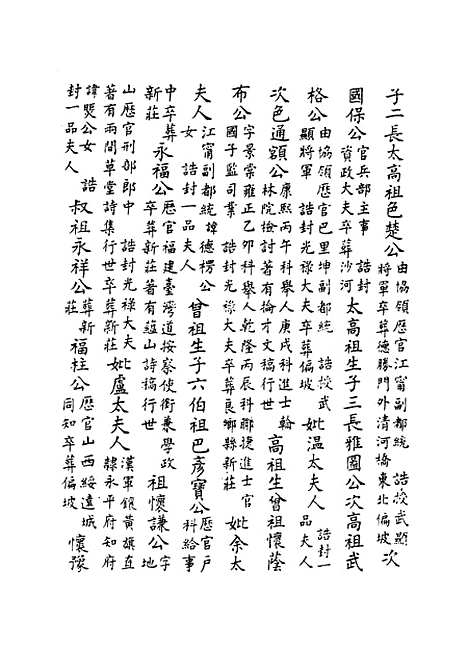 子二長太高祖色楚公由協領歷官江甯副都統 誥授武顯將軍卒葬德勝門外清河橋東北偏坡次
國保公官兵部主事 誥封資政大夫卒葬沙河太高祖生子三長雅圖公次高祖武
格公由協領歷官巴里坤副都統 誥授武顯將軍 誥封光祿大夫卒葬偏坡妣温太夫人 誥封一品夫人
次色通額公康熙丙午科舉人庚戌科進士翰林院檢討著有掄才文稿行世高祖生曾祖懷蔭
布公字景棠雍正乙卯科舉人乾隆丙辰科聯捷進士官國子監司業 誥封光祿大夫卒葬良鄉縣新莊妣余太
夫人江甯副都統諱德楞公女 誥封一品夫人曾祖生子六伯祖巴彥寶公歷官戶科給事
中卒葬新莊永福公歷官福建臺灣道按察使銜兼學政卒葬新莊著有蘊山詩稿行世祖懷謙公字地
山歷官刑部郎中 誥封光祿大夫著有雨閒草堂詩集行世卒葬新莊妣盧太夫人漢軍鑲黃旗直隸永平府知府
諱爕公女 誥封一品夫人叔祖永祥公葬新莊福柱公歷官山西綏遠城同知卒葬偏坡懷豫